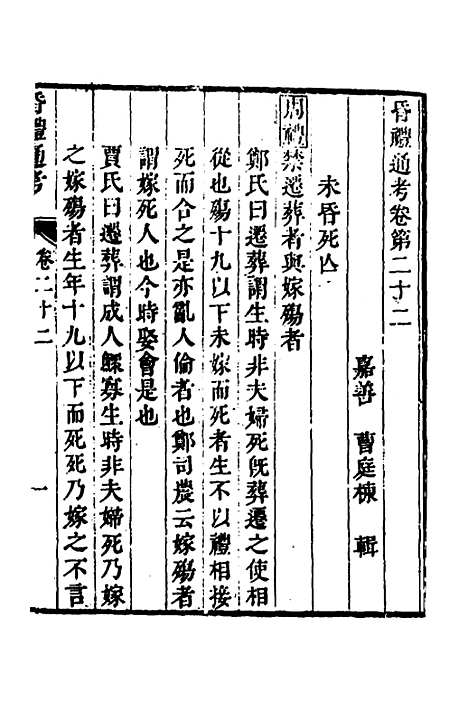 昏禮通考卷第二十二
嘉善 曹庭棟 輯
未昏死亾
周禮禁遷葬者與嫁殤者
鄭氏曰遷葬謂生時非夫婦死旣葬遷之使相
從也殤十九以下未嫁而死者生不以禮相接
死而合之是亦亂人倫者也鄭司農云嫁殤者
謂嫁死人也今時娶會是也
賈氏曰遷葬謂成人鰥寡生時非夫婦死乃嫁
之嫁殤者生年十九以下而死死乃嫁之不言
昏禮通考 卷二十二 一